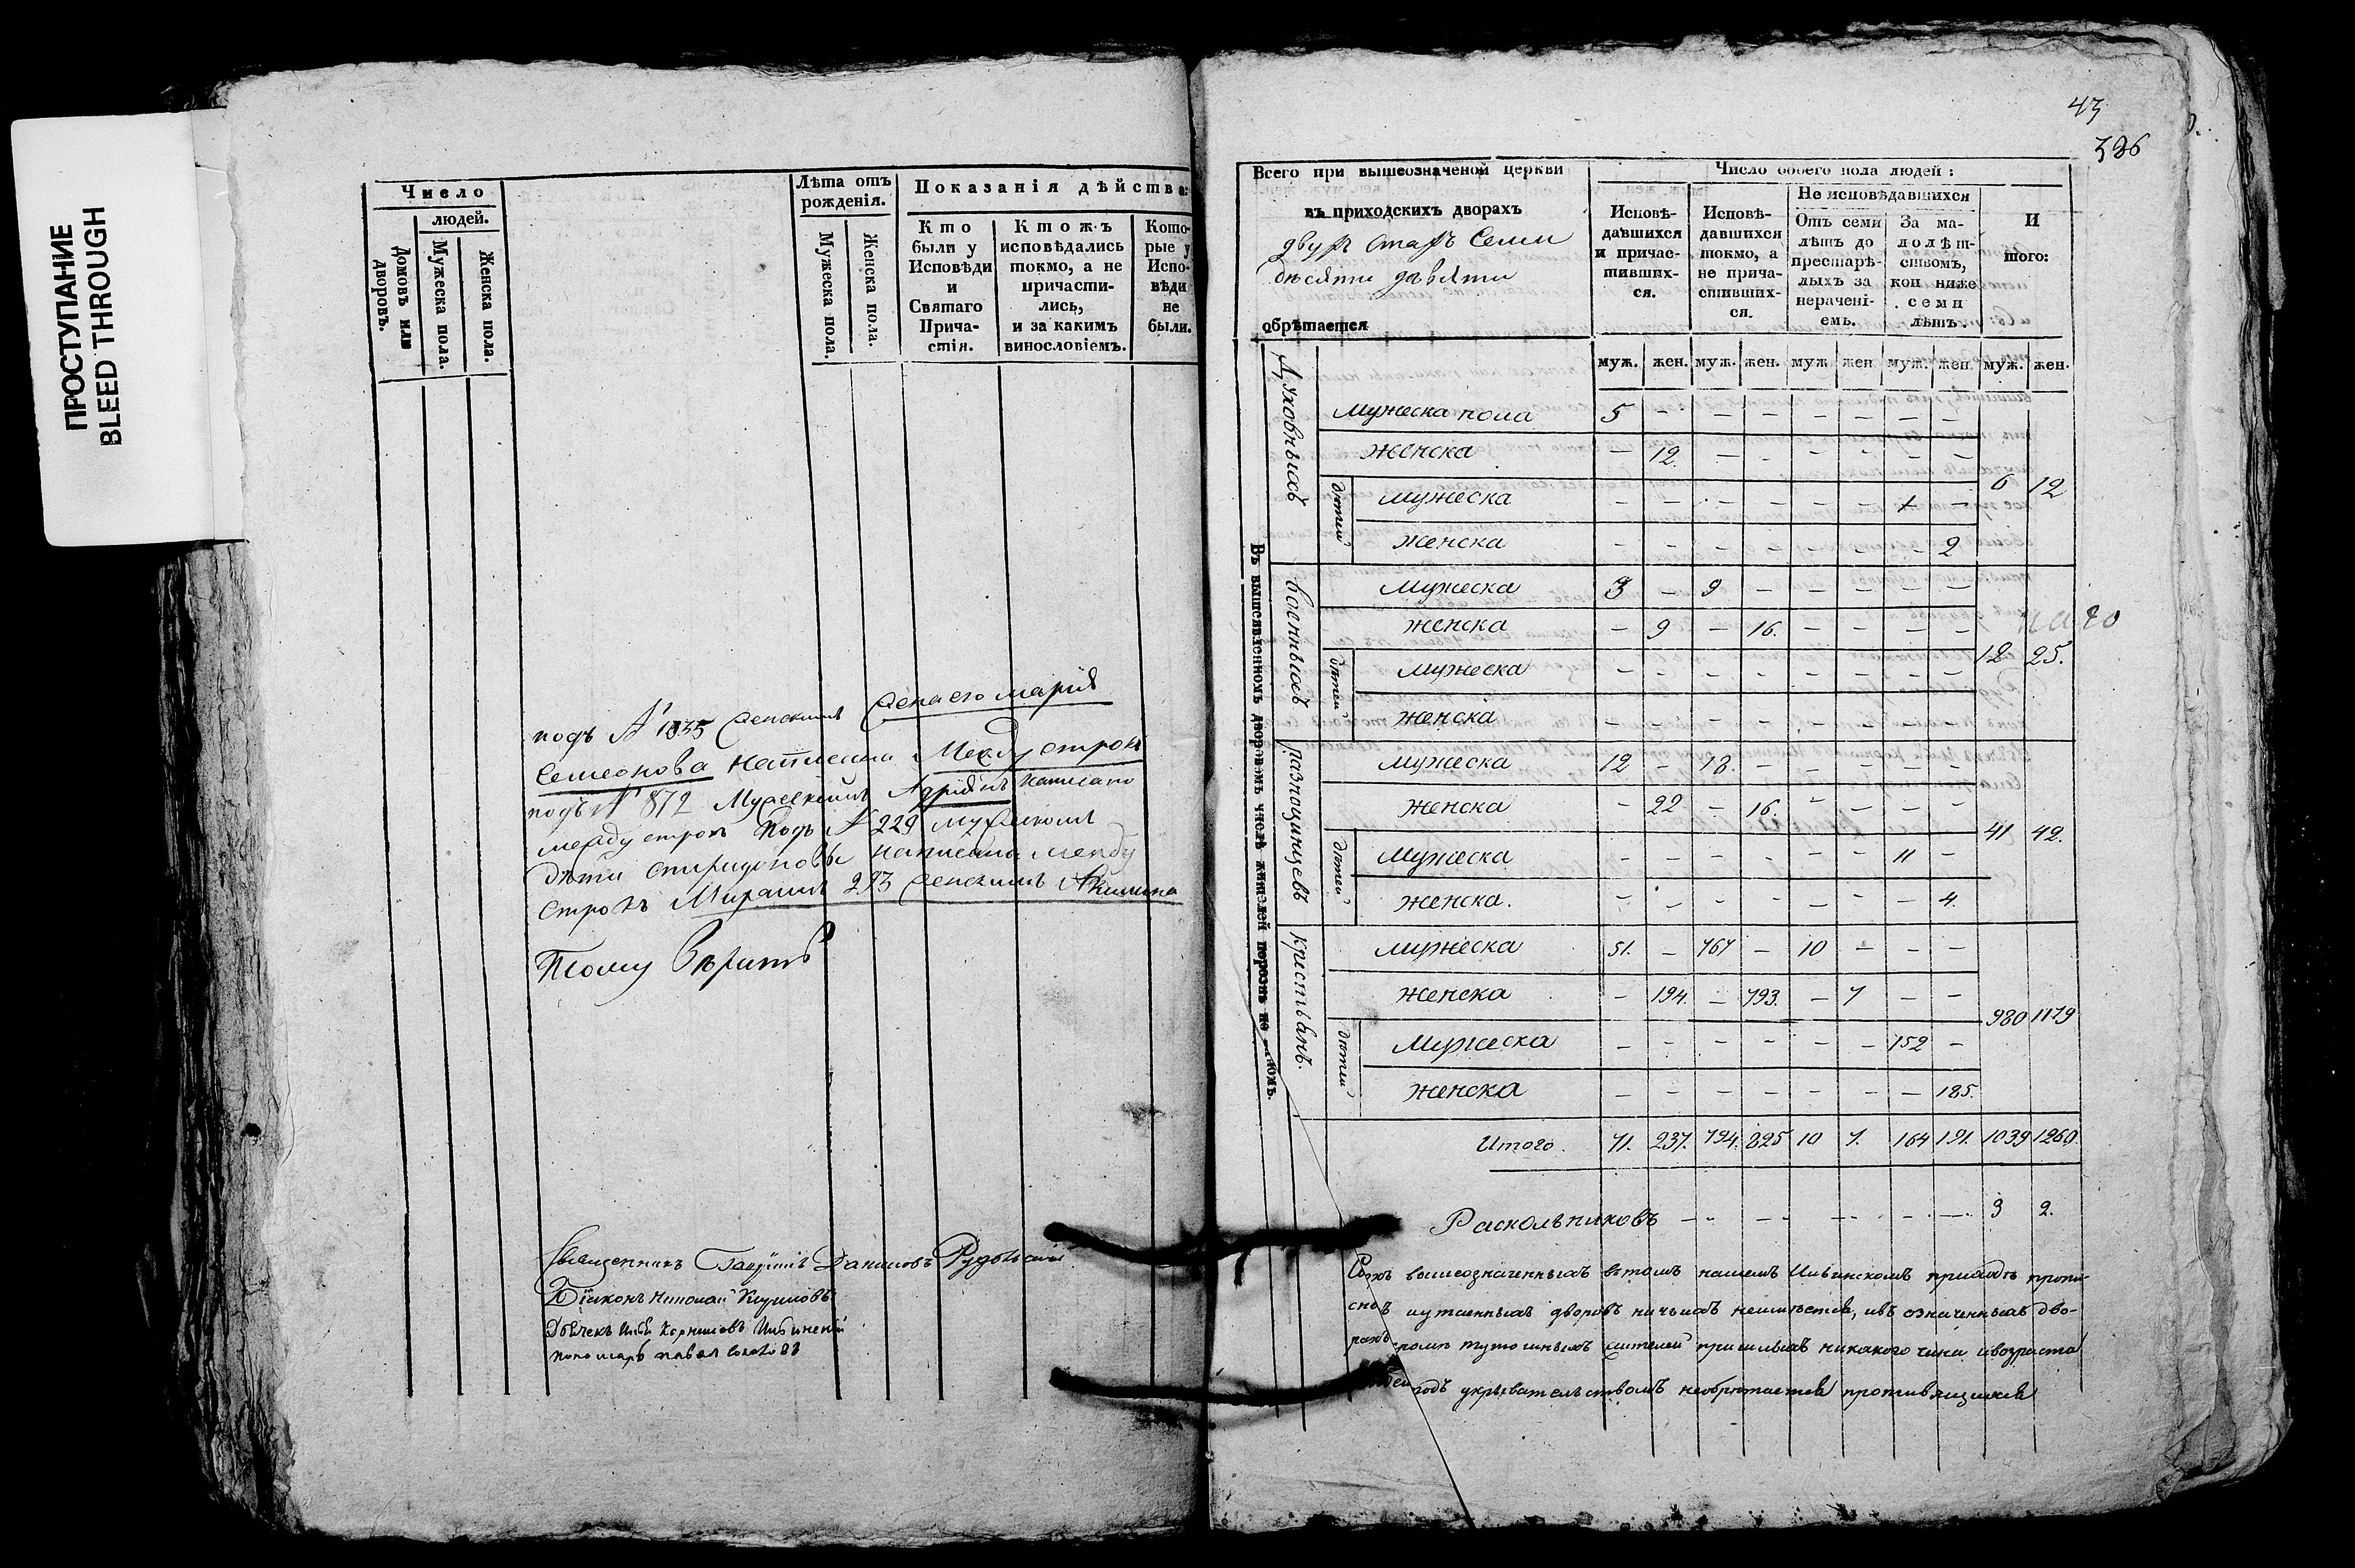 ПРОСТУПАНИЕ
BLEED THROUGH
Число
людей.
Домовъ или дворовъ.
Мужеска пола.
Женска пола.
Лѣта отъ рожденія.
Мужеска пола.
Женска пола.
Показанія дѣйства:
Кто были у Исповѣди и Святаго Прича-стія.
Кто жъ исповѣдались токмо, а не причасти-лись, и за какимъ винословіемъ.
Кото-рые у Испо-вѣди не были.
подъ № 1035 женскимъ
Семеонова написана Между строкъ
подъ № 872 Мужескимъ написано
между строкъ подъ № 229 мужескимъ
дѣти написана между
строкъ 293 женскимъ Акилина
Тому вѣрить
Священникъ Гавріилъ Даниловъ
Діяконъ Николай Кириловъ
Дьячекъ
пономарь павел
43
386
Всего при вышеозначеной церкви
въ приходскихъ дворахъ
двухъ стахъ Семи
десяти девяти
обрѣтается
Число обоего пола людей:
Исповѣ-давшихся и причас-тивших-ся.
Исповѣ-давшихся токмо, а не прича-стивших-ся.
Не исповѣдавшихся
Отъ семи лѣтъ до престарѣ-лыхъ за нерачені-емъ.
За ма-лолѣт-ствомъ, кои ниже семи лѣтъ.
И того:
муж. жен. муж. жен. муж жен муж. жен. муж. жен.
Въ вышеявленномъ дворовомъ числѣ жителей порознь по
Духовныхъ
Мужеска пола 5 - - - - - - -
женска - 12. - - - - - -
6 12
дѣтей
мужеска - - - - - - 1 -
женска - - - - - - - 2
Военныхъ
Мужеска 3 - 9 - - - - -
женска - 9 - 16. - - - -
12 25.
дѣтей
мужеска - - - - - - - -
женска - - - - - - - -
разночинцевъ
Мужеска 12 - 18. - - - - -
женска - 22 - 16. - - - -
41 42.
дѣтей
Мужеска - - - - - - 11 -
женска. - - - - - - - 4.
крестьянъ.
мужеска 51. - 767 - 10 - - -
женска - 194. - 793. - 7 - -
980 1179
дѣтей
Мужеска - - - - - - 152 -
женска - - - - - - - 185.
Итого. 71. 237. 794. 825 10 7. 164 191. 1039 1260.
Раскольниковъ 3 2.
вышеозначенныхъ втомъ нашемъ приходѣ пропи-
утаенныхъ дворовъ ничьихъ неимѣется, ивъ означенныхъ дво-
рахъ кромѣ жителей пришлыхъ никакого чина ивозраста
подъ укрывательствомъ необрѣтается